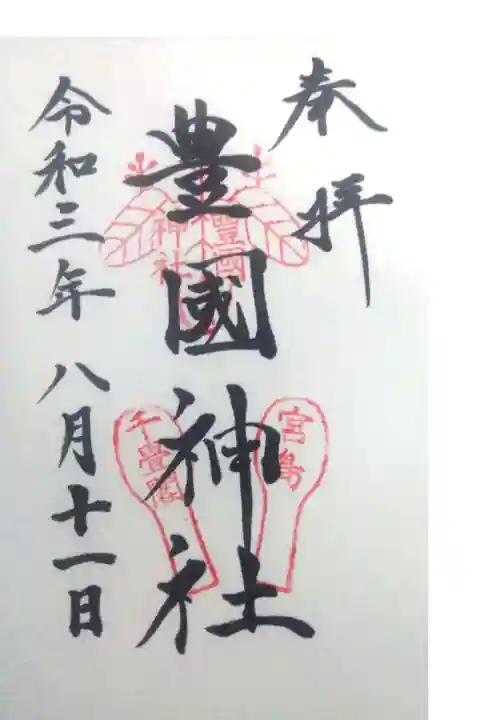 奉拝
豊國神社
豊國
神社
宮島
千畳閣
令和三年八月十一日